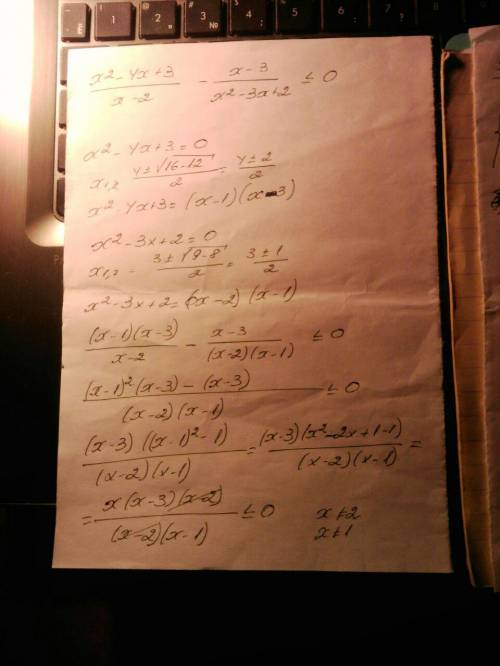 (x²-4x+3)/(x-2) - (x-3)/(x²-3x+2) ≤ 0
x²-4x+3=0
x₁,₂ (4±√(16-12))/2 = (4±2)/2
x²-4x+3=(x-1)(x-3)
x²-3x+2=0
x₁,₂ = (3±√(9-8))/2 = (3±1)/2
x²-3x+2=(x-2)(x-1)
((x-1)(x-3))/(x-2) - (x-3)/((x-2)(x-1)) ≤0
((x-1)²(x-3)-(x-3))/((x-2)(x-1)) ≤0
((x-3)((x-1)²-1))/((x-2)(x-1)) = ((x-3)(x²-2x+1-1))/((x-2)(x-1)) =
= (x(x-3)(x-2))/((x-2)(x-1)) ≤0 x≠2
x≠1